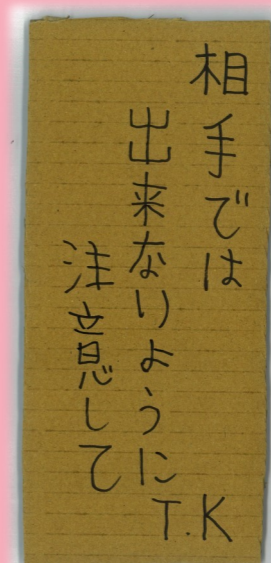 相手では
出来ないように
注意して
T.K